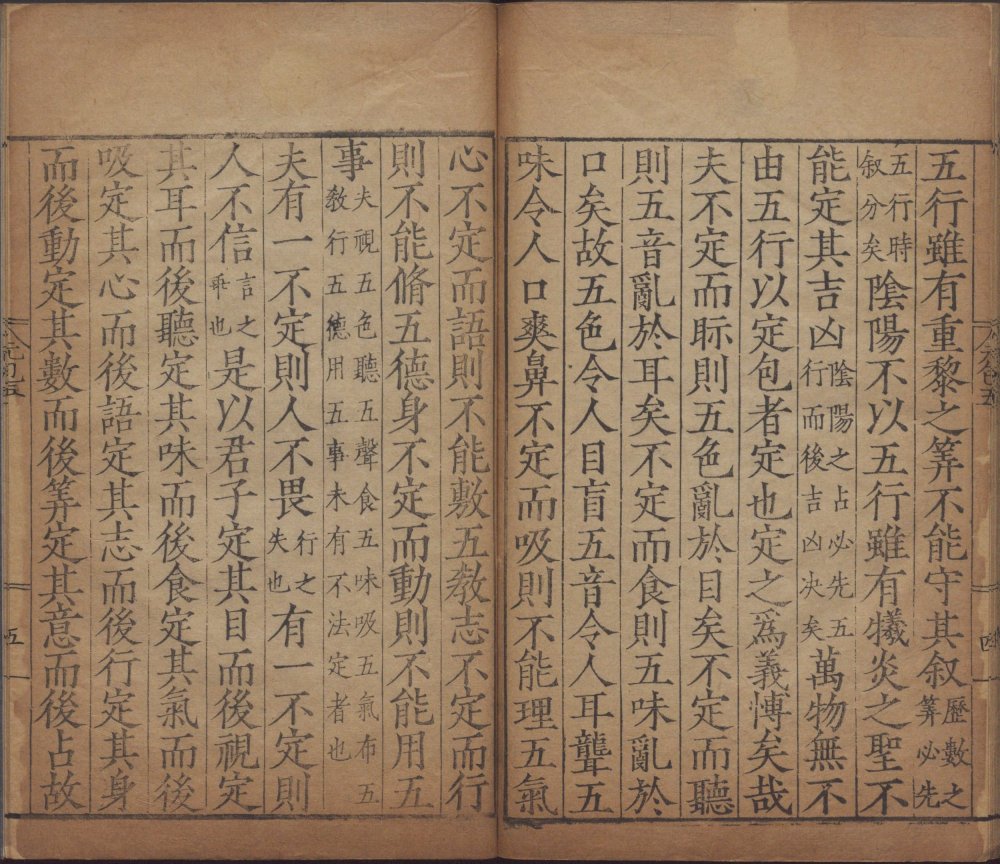 五行雖有重黎之筭不能守其叙歷數之筭必先
五行時叙分矣陰陽不以五行雖有犧炎之聖不
能定其吉凶陰陽之占必先五行而後吉凶决矣萬物無不
由五行以定包者定也定之爲義愽矣哉
夫不定而眎則五色亂於目矣不定而聽
則五音亂於耳矣不定而食則五味亂於
口矣故五色令人目盲五音令人耳聾五
味令人口爽鼻不定而吸則不能理五氣
心不定而語則不能敷五教志不定而行
則不能脩五德身不定而動則不能用五
事夫視五色聽五聲食五味吸五氣布五教行五德用五事未有不法定者也
夫有一不定則人不畏行之失也有一不定則
人不信言之乖也是以君子定其目而後視定
其耳而後聽定其味而後食定其氣而後
吸定其心而後語定其志而後行定其身
而後動定其數而後筭定其意而後占故